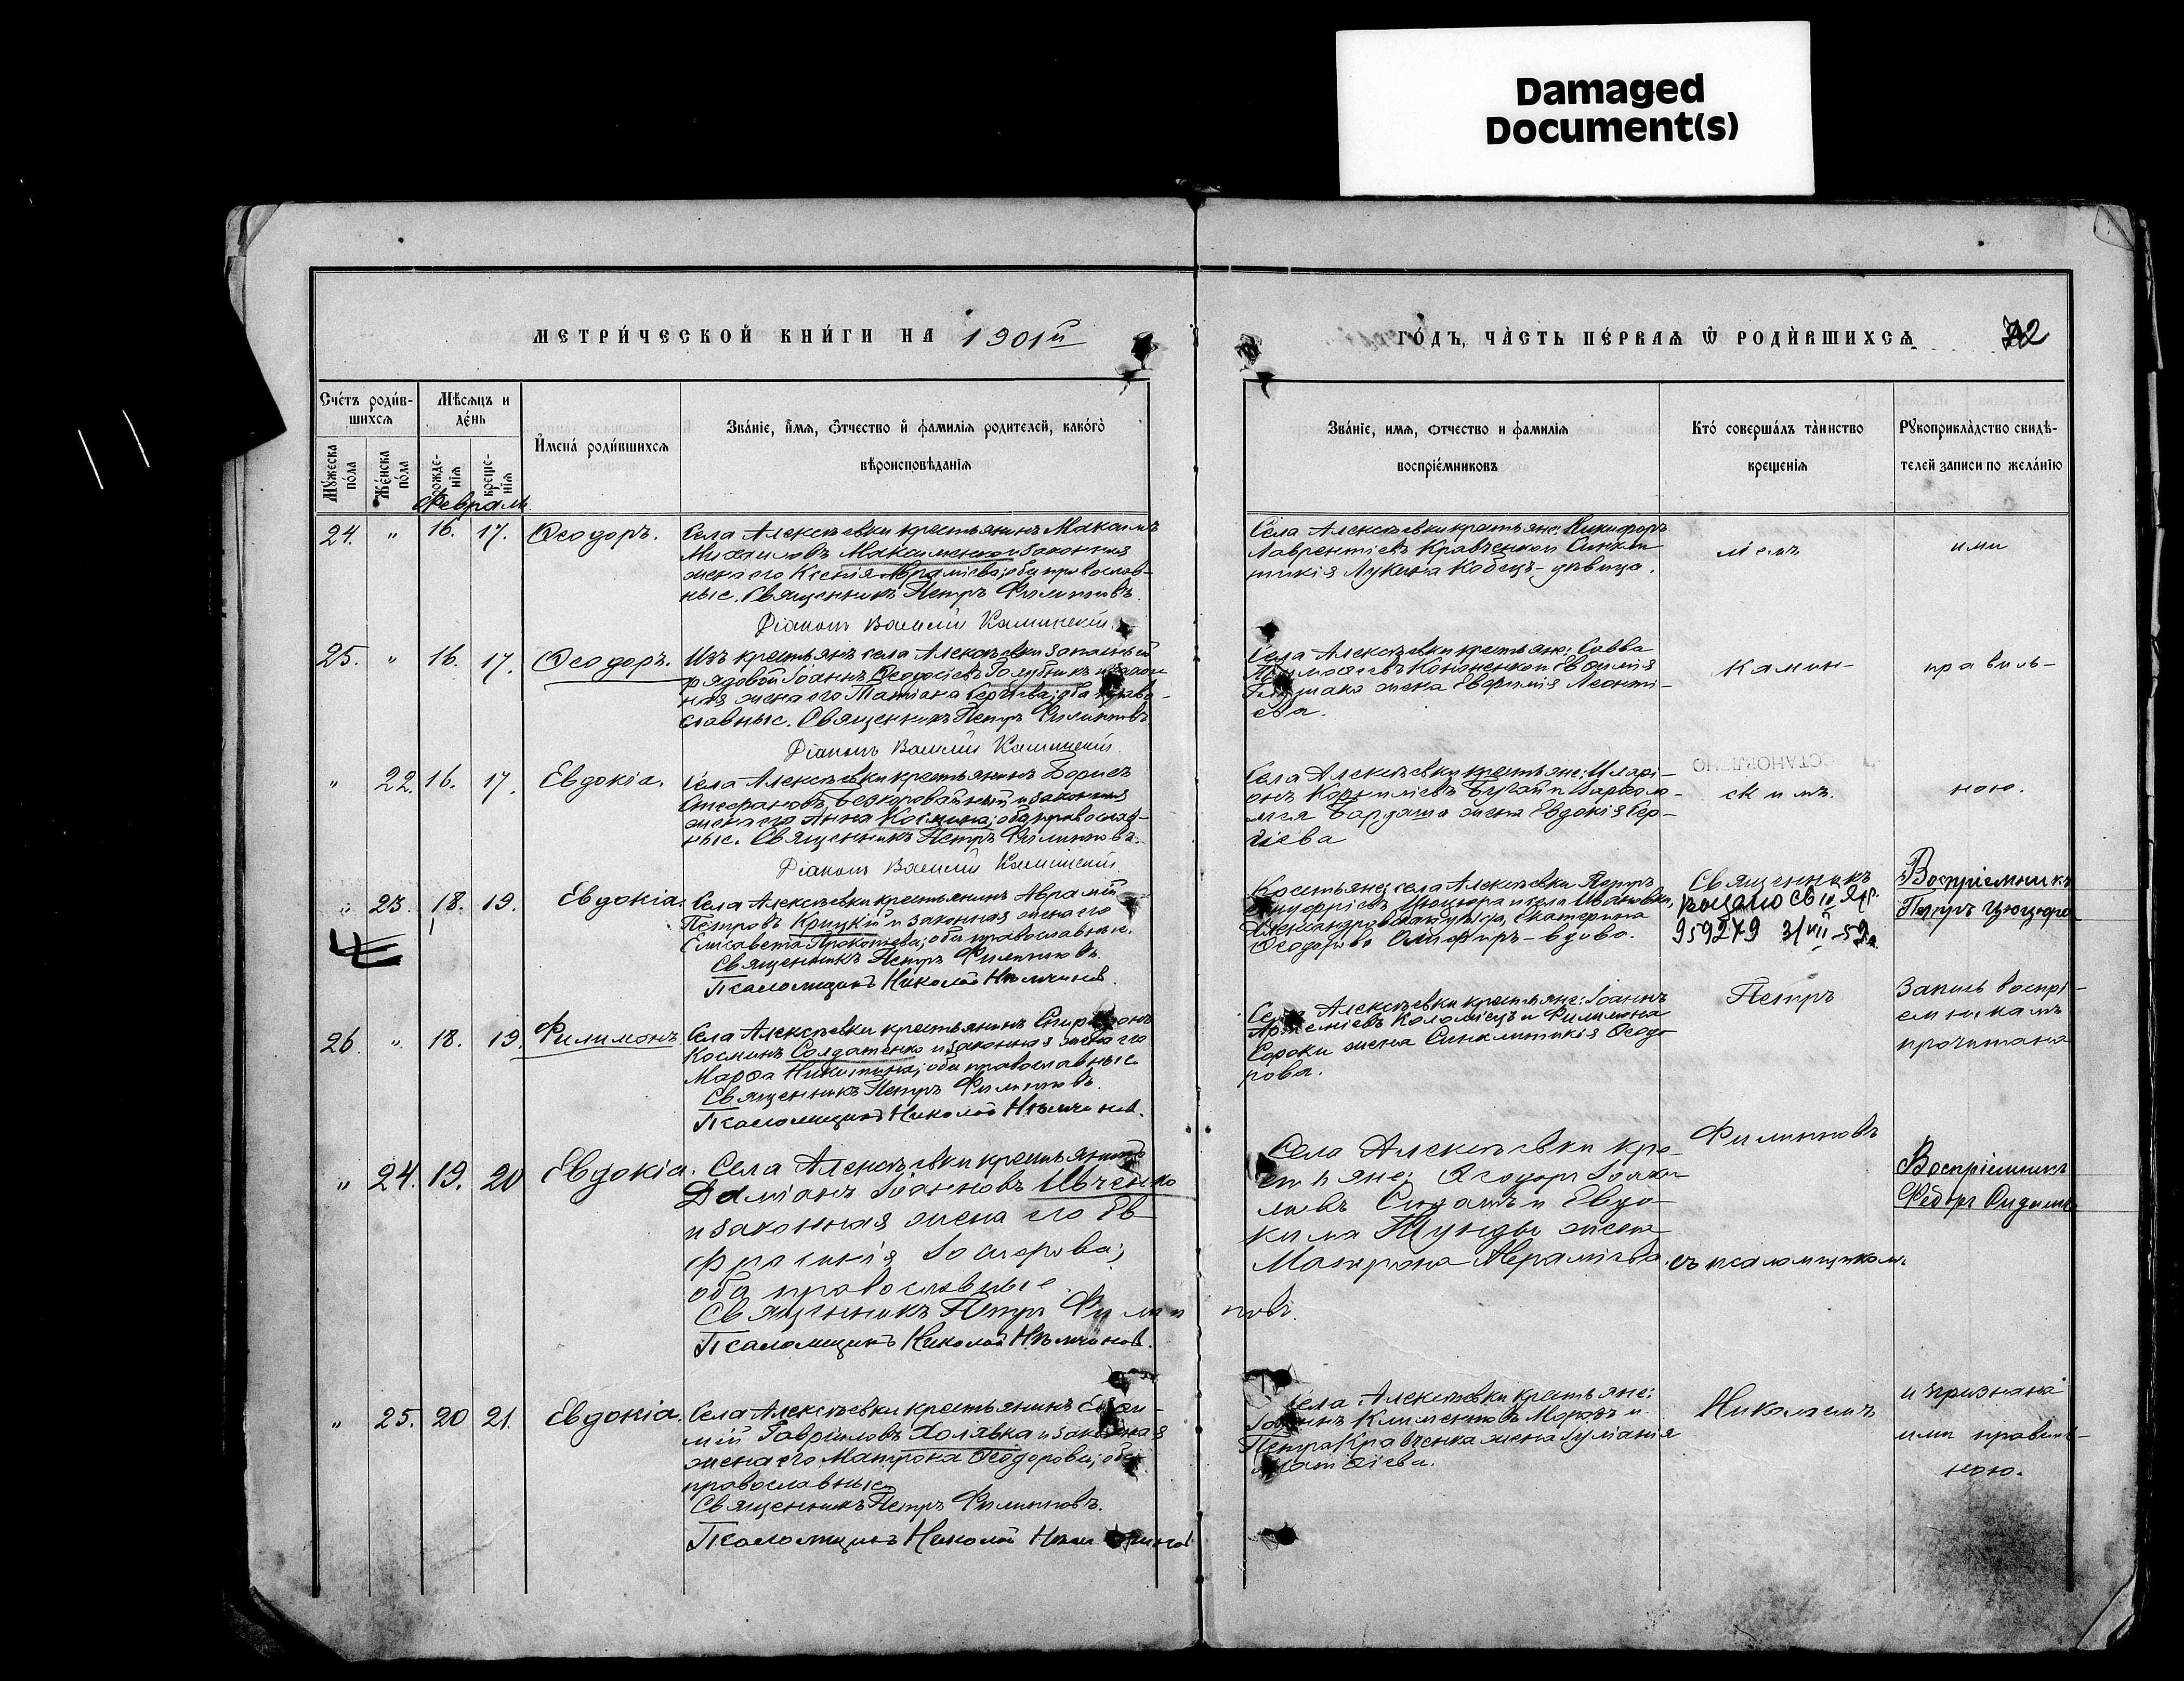 Damaged
Document(s)
МЕТРИ́ЧЕСКОЙ КНИ́ГИ НА 1901й
ГО́ДЪ, ЧА́СТЬ ПЕ́РВАѦ Ѿ РОДИ́ВШИХСѦ
Сче́тъ роди́в-
шихсѧ
Мѣ́сѧцъ и
де́нь
Имена́ роди́вшихсѧ
Зва́нїе, и҆́мѧ, ѻ҆́тчество и҆ фамилїѧ родителей, како́гѡ
вѣроисповѣданїѧ
Мꙋжеска
по́ла
Же́нска
по́ла
рожде-
нїѧ
креще-
нїѧ
Февраль.
Зва́нїе, имѧ, ѻтчество и фамилїѧ
воспрїе́мниковъ
Кто́ соверша́лъ та́инство
крещенїѧ
Рꙋкоприкла́дство свидѣ-
телей записи по жела́нїю
24. " 16. 17. Ѳеодоръ.
Села Алексѣевки крестьянинъ Максимъ
Михаиловъ Максименко и законная
жена его Ксенія Авраміева; оба православ-
ные. Священникъ Петръ Филипповъ.
Діаконъ Василій
Села Алексѣевки крестьяне: Никифоръ
Лаврентіевъ Кравченко и Синкли-
тикія Лукина Кобецъ - дѣвица.
ими
25. " 16. 17. Ѳеодоръ.
Изъ крестьянъ села Алексѣевки запасный
рядовой Іоаннъ
ная жена его Татіана Сергіева; оба право-
славные. Священникъ Петръ Филипповъ
Діаконъ Василій
Села Алексѣевки крестьяне: Савва
Кононенко и Евфимія
жена Евфимія Леонті-
ева.
правиль-
" 22. 16. 17. Евдокіа.
Села Алексѣевки крестьянинъ Борисъ
Стефановъ Безкоровайный и законная
жена его Анна Космина; оба православ-
ные. Священникъ Петръ Филипповъ.
Діаконъ Василій
Села Алексѣевки крестьяне: Иларі-
онъ Корниліевъ Бугай и Варѳоло-
мея жена Евдокія Сер-
гіева
скимъ.
ною.
" 23. 18. 19. Евдокіа.
Села Алексѣевки крестьянинъ Аврамій
Петровъ Крицкій и законная жена его
Елисавета Прокопіева; оба православные.
Священникъ Петръ Филипповъ.
Псаломщикъ Николай Нѣмчиновъ.
Крестьяне села Алексѣевки Петръ
Онуфріевъ Цюцюра и села Ивановки,
Екатерина
Ѳеодорова - вдова.
Священникъ
959279 3/VII-52г.
Воспріемникъ
Петръ Цюцюра
26. " 18. 19. Филимонъ.
Села Алексѣевки крестьянинъ Спиридонъ
Косминъ Солдатенко и законная жена его
Марѳа Никитина; оба православные
Священникъ Петръ Филипповъ.
Псаломщикъ Николай Нѣмчиновъ.
Села Алексѣевки крестьяне: Іоаннъ
Артеміевъ Коломіецъ и Филимона
Сороки жена Синклитикія Ѳеодо-
рова.
Петръ
Запись воспрі-
емникамъ
прочитана
" 24. 19. 20 Евдокіа.
Села Алексѣевки крестьянинъ
Даміанъ Іоанновъ Ивченко
и законная жена его Ев-
фросинія Іосифова;
оба православные
Священникъ Петръ Филипповъ.
Псаломщикъ Николай Нѣмчиновъ.
Села Алексѣевки кре-
стьяне: Ѳеодоръ
и Евдо-
кима жена
Матрона Авраміева.
Филипповъ
съ псаломщикомъ
Воспріемникъ
" 25. 20 21. Евдокіа.
Села Алексѣевки крестьянинъ Евѳи-
мій Гавріиловъ Холявка и законная
жена его Матрона Ѳеодорова; оба
православные
Священникъ Петръ Филипповъ.
Псаломщикъ Николай Нѣмчиновъ
Села Алексѣевки крестьяне:
Іоаннъ Климентовъ Морозъ и
Петра Кравченка жена Іуліанія
Николаемъ
и признана
ими правиль-
ною.